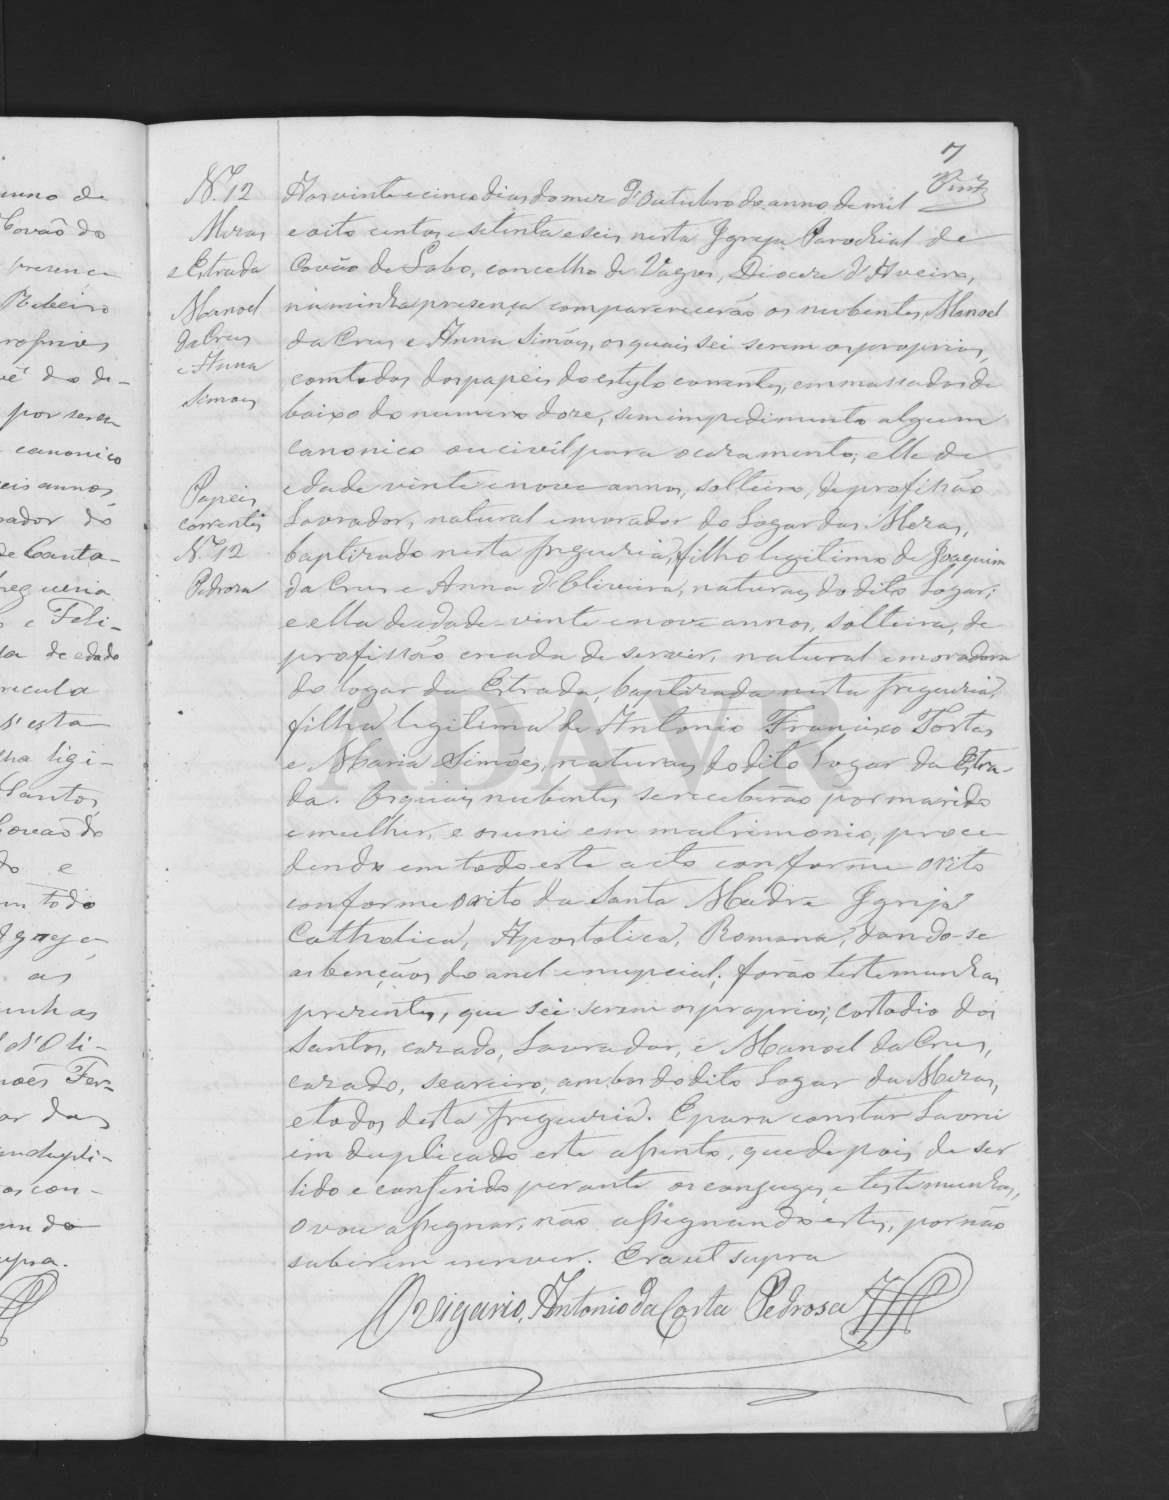 7
N.º 12
Mezas
e Estrada
Manoel
da Crus
e Anna
Simoes
Papeis
correntes
N.º 12
Pedrosa
Aos vinte e cinco dias do mez d'Outubro do anno de mil
e oito centos e setenta e seis, nesta Igreja Parochial de
Covão do Lobo, concelho de Vagos, Diocese d'Aveiro,
na minha presença comparecerão os nubentes, Manoel
da Crus e Anna Simões, os quais sei serem os proprios,
com todos dos papeis do estylo correntes, emmassados de
baixo do numero doze, sem impedimento algum
canonico ou civil para o casamento; elle de
edade vinte e nove annos, solteiro, de profissão
Lavrador, natural e morador do Logar das Mezas,
baptizado nesta freguezia, filho legitimo de Joaquim
da Crus e Anna d'Oliveira, naturaes do dito Logar;
e ella de edade vinte e nove annos, solteira, de
profissão creada de servir, natural e moradora
do logar da Estrada, baptizada nesta freguezia,
filha legitima de Antonio Francisco Tortas
e Maria Simões, naturaes do dito Logar da Estra-
da. Os quais nubentes se receberão por marido
e mulher, e os uni em matrimonio, proce
dendo em todo este acto conforme o rito
conforme o rito da Santa Madre Igreja
Catholica, Apostolica, Romana, dando-se
as bençãos do anel e nupcial; forão testemunhas
prezentes, que sei serem os proprios, Costodio dos
Santos, cazado, Lavrador, e Manoel da Crus,
cazado, seareiro, ambos do dito Logar das Mezas,
e todos desta freguezia. E para constar Lavrei
em duplicado este assento, que depois de ser
lido e conferido perante os conjuges e testemunhas,
o vou assignar; não assignando estes, por não
saberem escrever. Era ut supra
O Vigario, Antonio da Costa Pedrosa
ADAVR